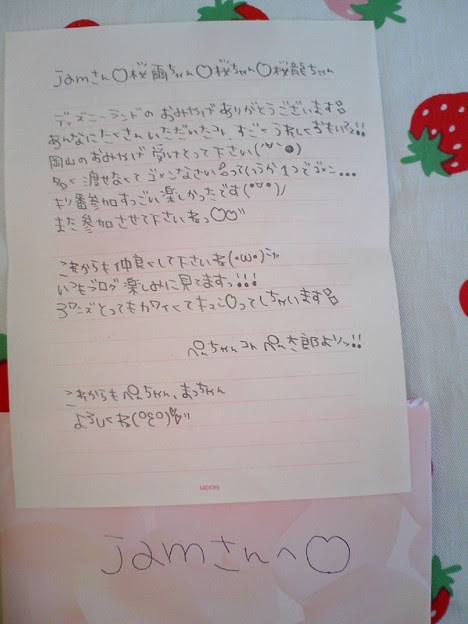 jamさん♡桜雨ちゃん♡桜ちゃん♡桜龍ちゃん
ディズニーランドのおみやげありがとうございます
あんなにたくさんいただいたコト、すごくうれしくおもいマス!!
岡山のおみやげ受けとって下さい(´∀`●)
多く渡せなくてゴメンなさいねってゆうか1つでゴメン...
ド番参加すっごい楽しかったです(・∀・)ノ
また参加させて下さいねっ♡♡"
これからも仲良くして下さいね(・ω・)
いつもブログ楽しみに見てますっ!!!
3ワンズとってもカワイくてキュン♡ってしちゃいます
ぺんちゃんコト ぺん太郎よりッ!!
これからもぺんちゃん、まっちゃん
よろしくね
MIDORI
jamさんへ♡